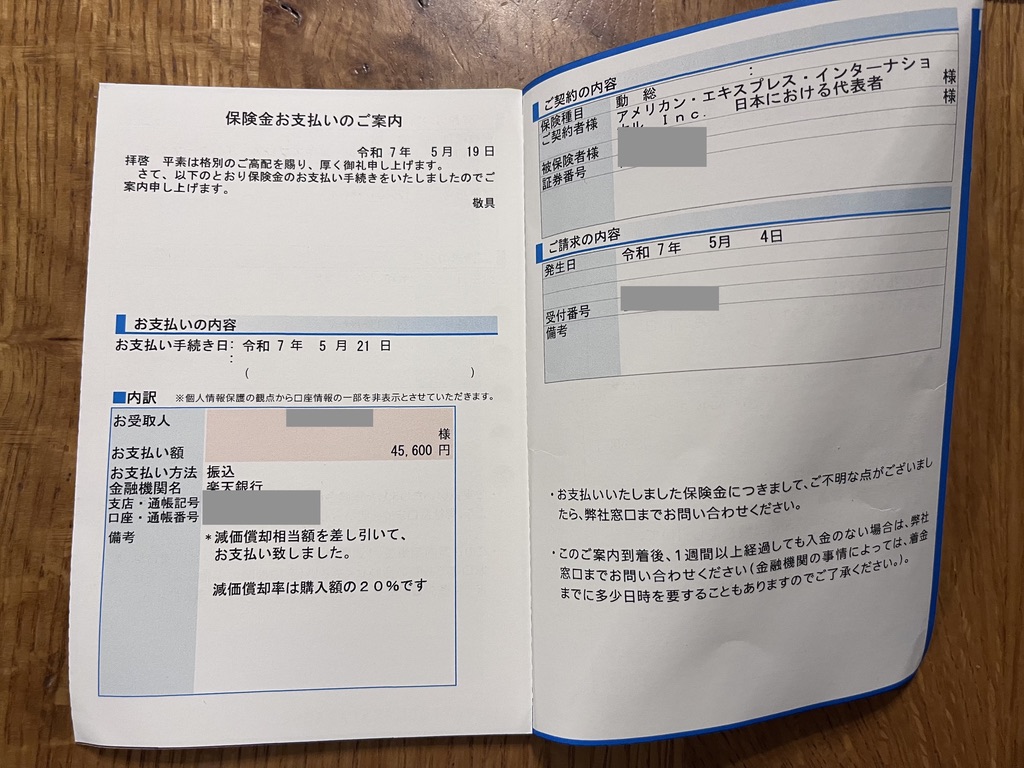 保険金お支払いのご案内
令和 7年 5月 19日
拝啓 平素は格別のご高配を賜り、厚く御礼申し上げます。
さて、以下のとおり保険金のお支払い手続きをいたしましたのでご
案内申し上げます。
敬具
お支払いの内容
お支払い手続き日: 令和 7 年 5 月 21 日
:
( )
■内訳 ※個人情報保護の観点から口座情報の一部を非表示とさせていただきます。
お受取人
様
お支払い額 45,600 円
お支払い方法 振込
金融機関名 楽天銀行
支店・通帳記号
口座・通帳番号
備考 *減価償却相当額を差し引いて、
お支払い致しました。
減価償却率は購入額の20%です
ご契約の内容
:
保険種目 動 総
ご契約者様 アメリカン・エキスプレス・インターナショ
ナル, Inc. 日本における代表者 様
被保険者様 様
証券番号
ご請求の内容
発生日 令和 7年 5月 4日
受付番号
備考
・お支払いいたしました保険金につきまして、ご不明な点がございまし
たら、弊社窓口までお問い合わせください。
・このご案内到着後、1週間以上経過しても入金のない場合は、弊社
窓口までお問い合わせください(金融機関の事情によっては、着金
までに多少日時を要することもありますのでご了承ください。)。